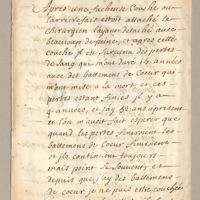 Apres une facheuse Couche ou
l'arriere fais étoit attaché les
chirurgien l'ayant detaché avec
beaucoup de peine, et apres cette
couche il est survenu des pertes
de Sang qui m'ont duré 13 années
avec des battemens de Cœur qui
m'ont mise a la mort, et ces
pertes estant finies il y a
années, et j'ay 52 ans apresent
on m'avoit fait esperer que
quand les pertes finiroient les
battemens de Coeur finiroient
et ils continuent toujours
mais point si souvent, et
depuis que j'ay des battemens
de coeur je ne puis estre couchée